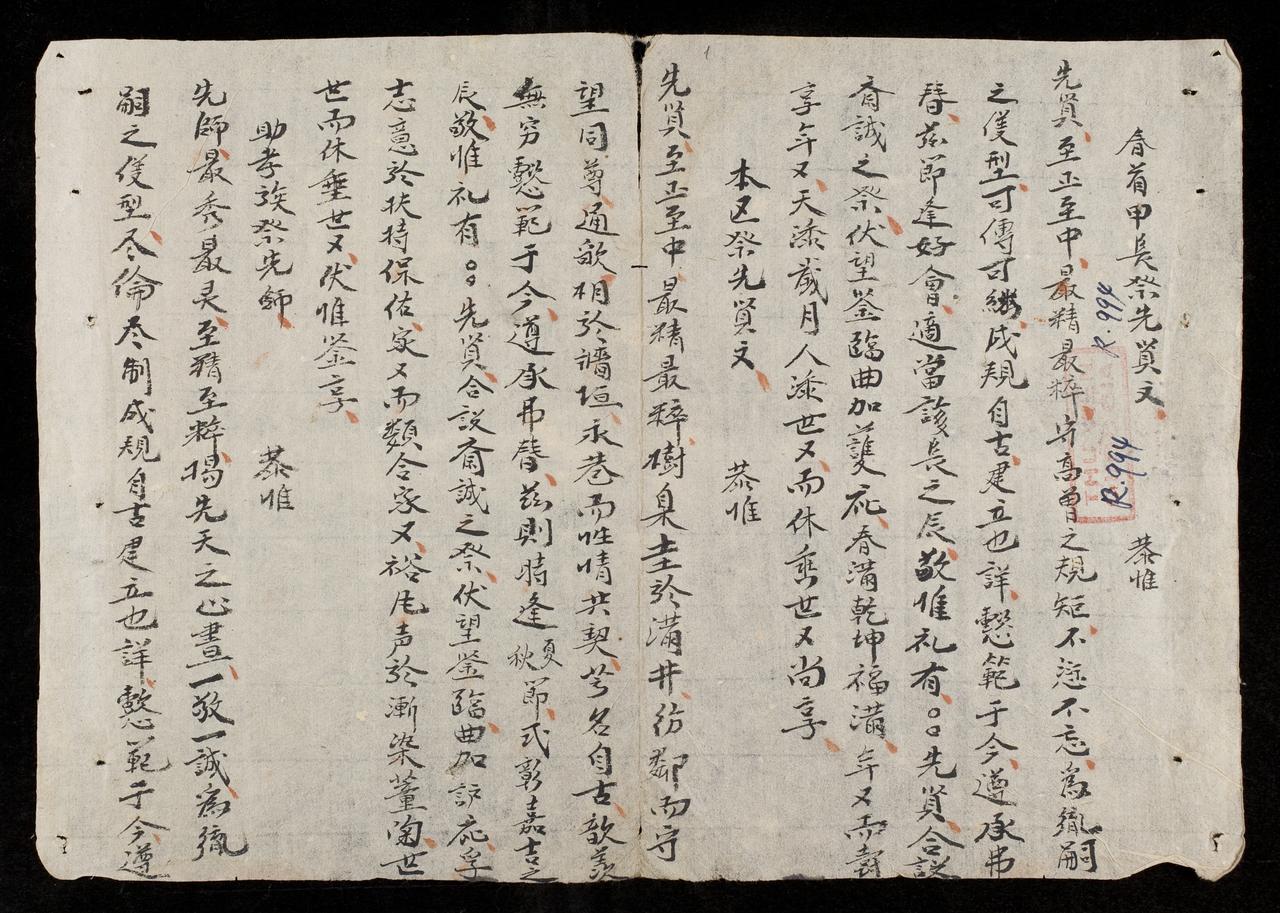 春首甲長祭先賢文 恭惟
先賢至正至中最精最粹守高曽之規矩不愆不忘為維嗣
之後型可傳可継成規自古建立也詳懿範于今遵承弗
替茲節逢好會適當該長之辰敬惟礼有○○先賢合設
齋誠之祭伏望鉴臨曲加護庇春滿乾坤福滿年又而壽
享年又天添歲月人添世又而休垂世又尚享
本区祭先賢文 恭惟
先賢至正至中最精最粹樹臬圭於溝井彷鄰而守
望同尊通欵硐於墻垣永巷而性情共契芳名自古歆羨
無穷懿範于今遵承弗替茲則時逢夏秋節式彰嘉吉之
辰敬惟礼有○○先賢合設齋誠之祭伏望鉴臨曲加護庇孚
志意於扶持保佑家又而類合家又裕民声於漸染薰陶世
世而休垂世又伏惟鉴享
助孝族祭先師 恭惟
先師最秀最灵至精至粹揭先天之心晝一敬一誠為
嗣之後型尽倫尽制成規自古建立也詳懿範于今遵
R.994
R.994